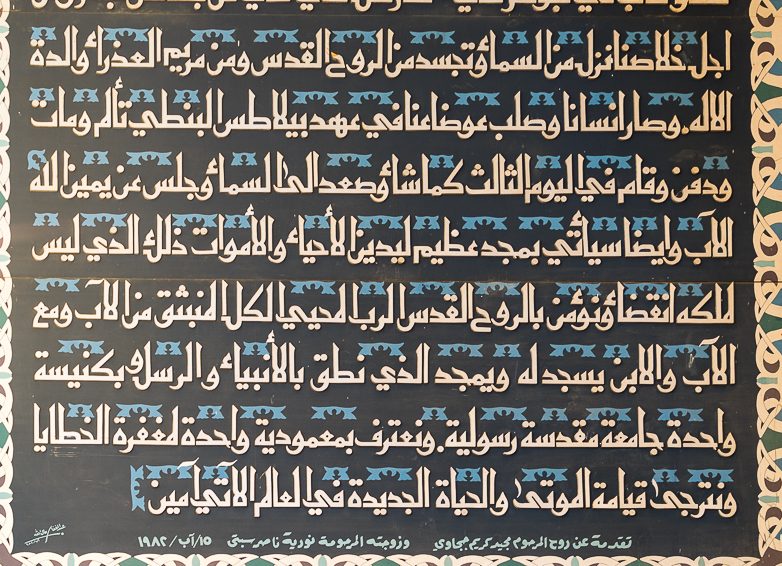 اجل خلاصنا نزل من السماء وتجسد من الروح القدس ومن مريم العذراء والدة
الاله. وصار انسانا وصلب عوضا عنا في عهد بيلاطس البنطي تألم ومات
ودفن وقام في اليوم الثالث كما شاء وصعد الى السماء وجلس عن يمين الله
الآب وايضا سيأتي بمجد عظيم ليدين الأحياء والأموات ذلك الذي ليس
لملكه انقضاء ونؤمن بالروح القدس الرب المحيي لكل المنبثق من الآب ومع
الآب والابن يسجد له ويمجد الذي نطق بالأنبياء والرسل وبكنيسة
واحدة جامعة مقدسة رسولية. ونعترف بمعمودية واحدة لمغفرة الخطايا
ونترجى قيامة الموتى والحياة الجديدة في العالم الآتي آمين
تقدمة عن روح المرحوم مجيد كريم حجاوي وزوجته المرحومة نورية ناصر سبتي ١٥/آب/١٩٨٢